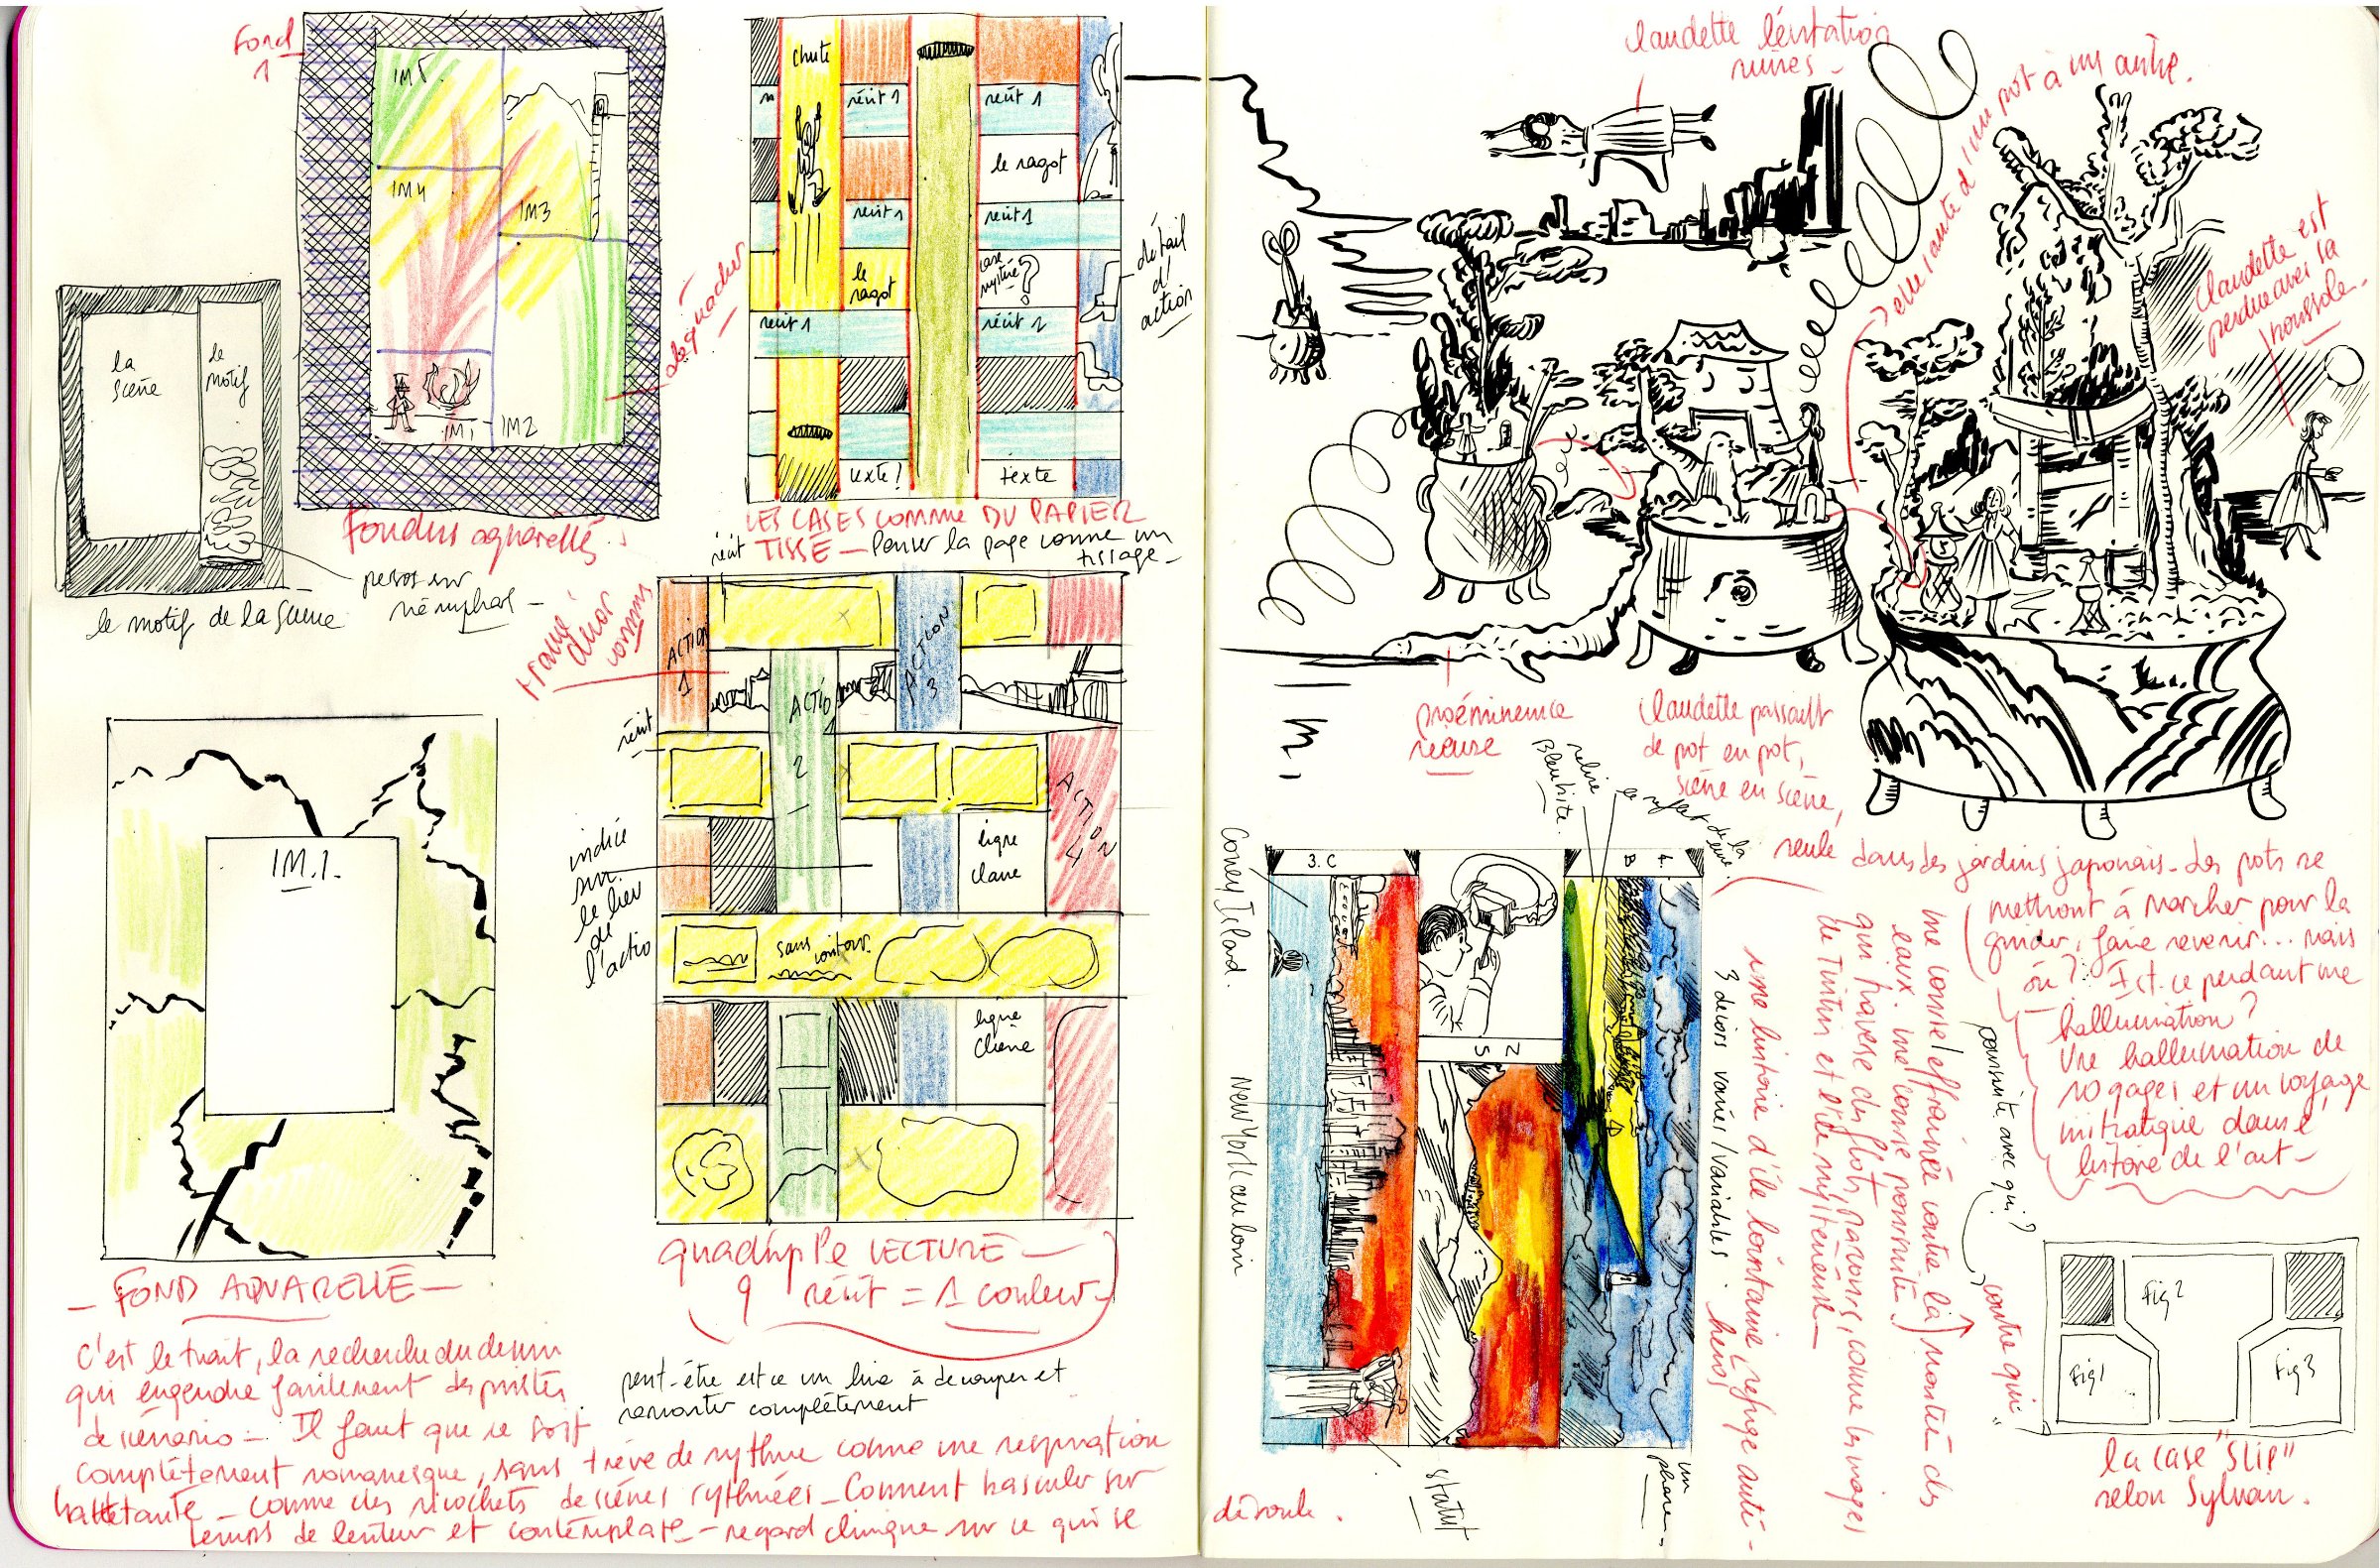 Fond
1
IM5
IM4
IM3
IM1
IM2
à la gouacher
Fondus aquarellés
la
scène
le
motif
le motif de la scène
chute
récit 1
récit 1
le ragot
récit 1
récit 1
le
ragot
case
mystère ?
récit 1
récit 2
texte !
texte
détail
d'
action
LES CASES COMME DU PAPIER
TISSÉ — Penser la page comme un
tissage —
récit
décor
récit
ACTION
1
ACTION
3
ACTIO
2
ACTION
4
ligne
claire
indice
sur
le lieu
de
l'actio
sans contour
ligne
claire
quadruple LECTURE —
récit = 1 couleur
IM.1.
— FOND AQUARELLE —
C'est le trait, la recherche du dessin
qui engendre facilement des pistes
de scénario — Il faut que ce soit
complètement romanesque, sans trève de rythme comme une respiration
haletante — comme des ricochets de scènes rythmées — Comment basculer sur
temps de lenteur et contemplat — regard clinique sur ce qui se
déroule .
peut-être est ce un livre à découper et
remonter complètement
Claudette lévitation
ruines —
d'un pot à un autre.
Claudette est
perdue avec sa
boussole —
proéminence
Claudette passant
de pot en pot,
scène en scène,
seule dans des jardins japonais — Les pots se
mettront à marcher pour la
guider, faire revenir... mais
où ? Est-ce pendant une
hallucination ?
Une hallucination de
10 pages et un voyage
initiatique dans l'
histoire de l'art —
relire
Blanhite.
le reflet de la
3. C
B 4.
N
S
Coney Island.
New York au loin
statut
un
phare —
3 décors variés / variables .
une histoire d'île lointaine, refuge anti-
héros
une course effrainée contre la montée des
eaux. Une course poursuite !
qui traverse des flots, navires, comme les images
de Tintin et l'île mystérieuse —
poursuite avec qui ?
contre qui
Fig 2
Fig 1
Fig 3
la case "SLIP"
selon Sylvain .